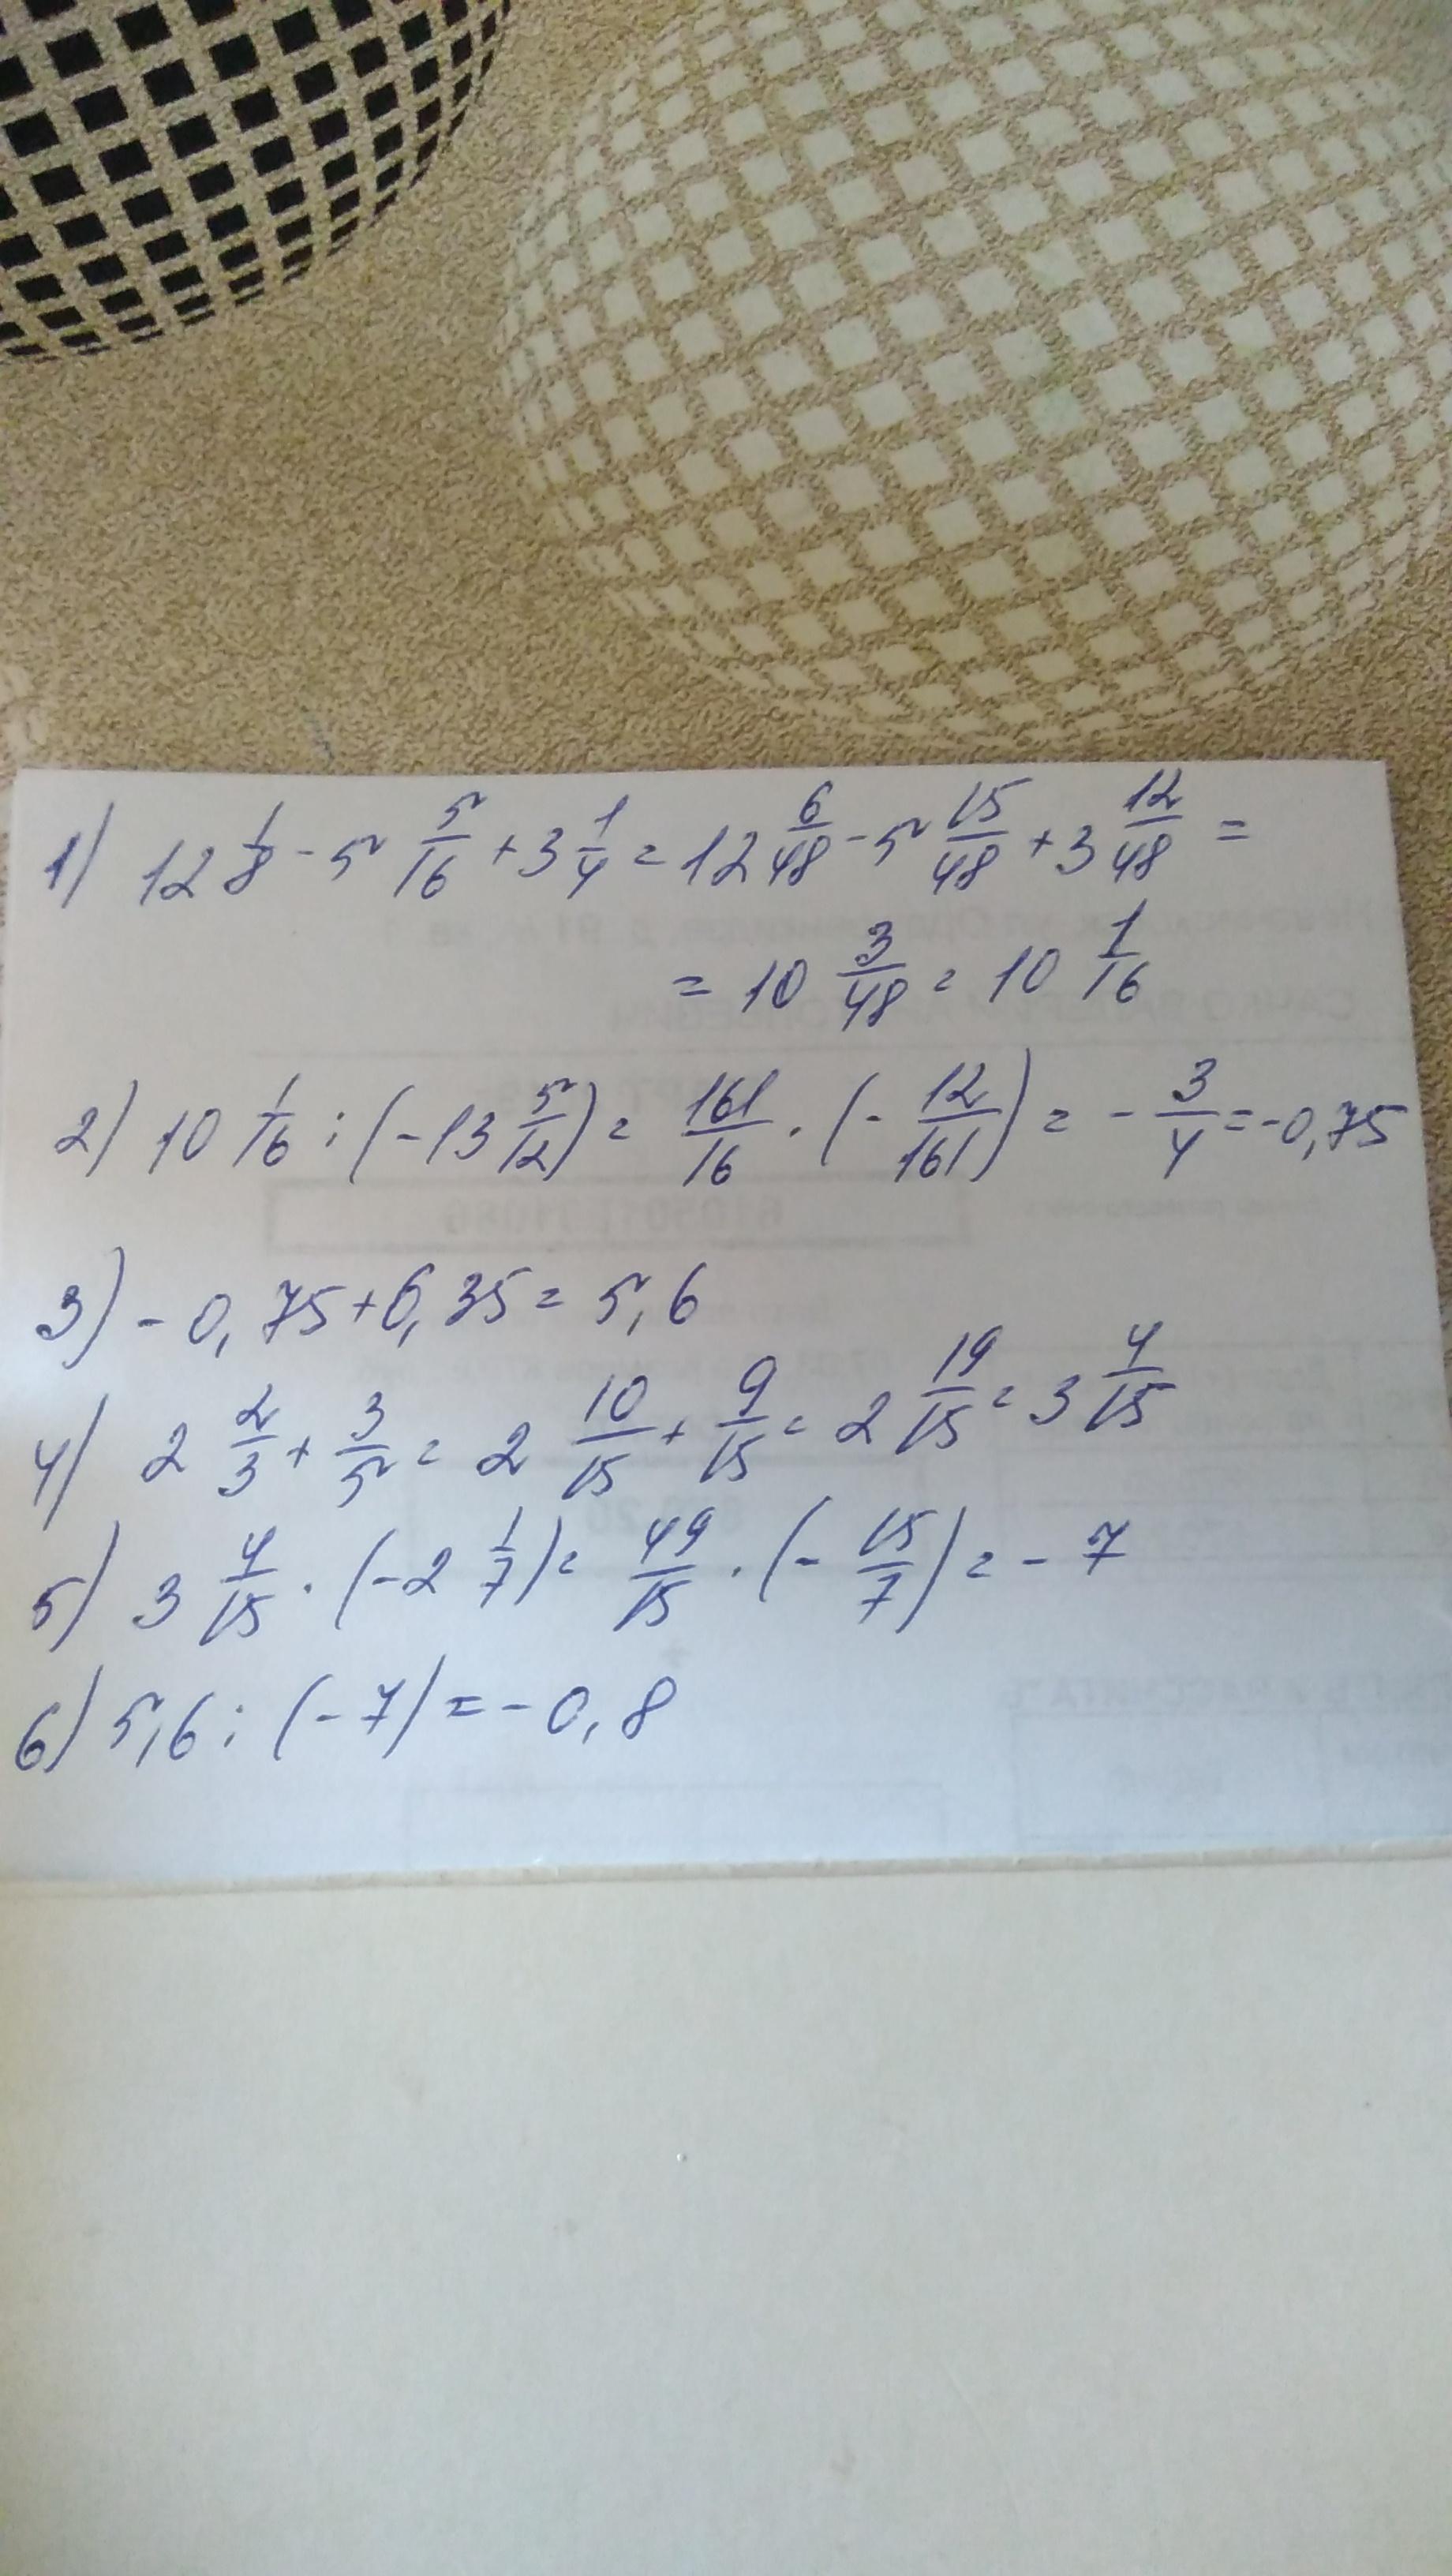 1) 12 1/8 - 5 5/16 + 3 1/4 = 12 6/48 - 5 15/48 + 3 12/48 =
= 10 3/48 = 10 1/16
2) 10 1/16 : (-13 5/12) = 161/16 · (- 12/161) = - 3/4 = -0,75
3) - 0,75 + 6,35 = 5,6
4) 2 2/3 + 3/5 = 2 10/15 + 9/15 = 2 19/15 = 3 4/15
5) 3 4/15 · (-2 1/7) = 49/15 · (- 15/7) = - 7
6) 5,6 : (- 7) = - 0,8